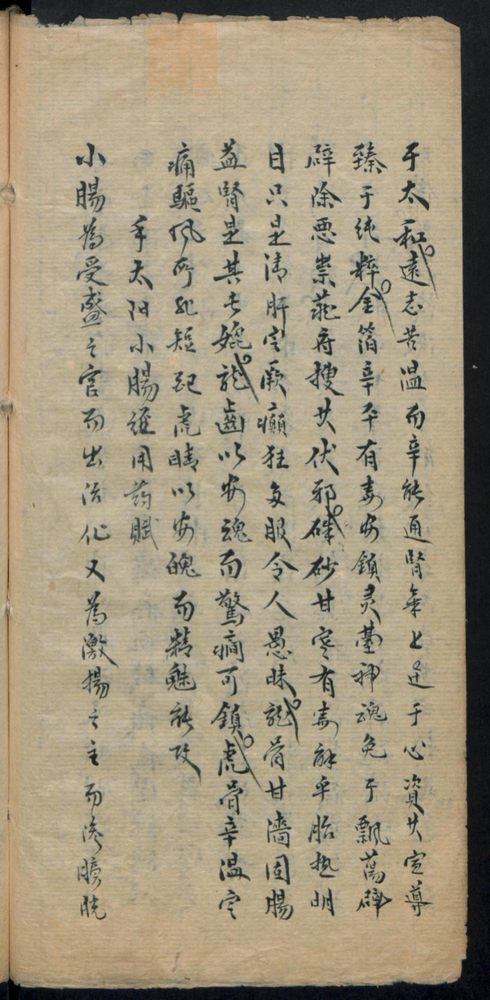 于太和遠志苦温而辛能通腎氣上达于心資其宣導
臻于純粹金箔辛平有毒安鎮灵臺神魂免于飄蕩辟
辟除悪祟蔵府搜其伏邪硃砂甘寒有毒解乎胎热明
目只是清肝定厥癲狂多服令人愚昧龍骨甘濇固腸
益腎是其长媲龍齒以安魂而驚癎可鎮虎骨辛温定
痛驅风所祀短記虎睛以安魄而精魅能攻
手太阳小腸経用药賦
小腸為受盛之官而出活化又為激揚之主而滲膀胱